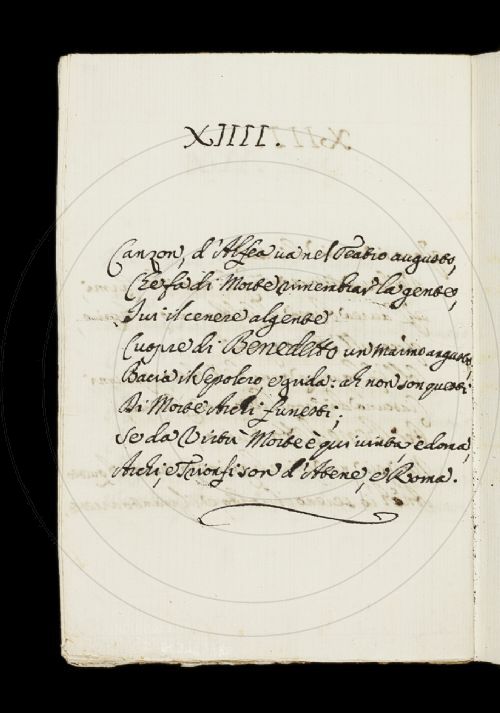 XIIII.
Canzon, d'Alfea va nel Teatro augusto,
Che fa di Morte rimembrar la gente,
Ivi il cenere algente
Cuopre di Benedetto un marmo angusto,
Bacia il sepolcro e grida: ah non son questi
Di Morte Archi funesti;
Se da Virtù Morte è qui vinta, e doma,
Archi, e Trionfi son d'Atene, e Roma.